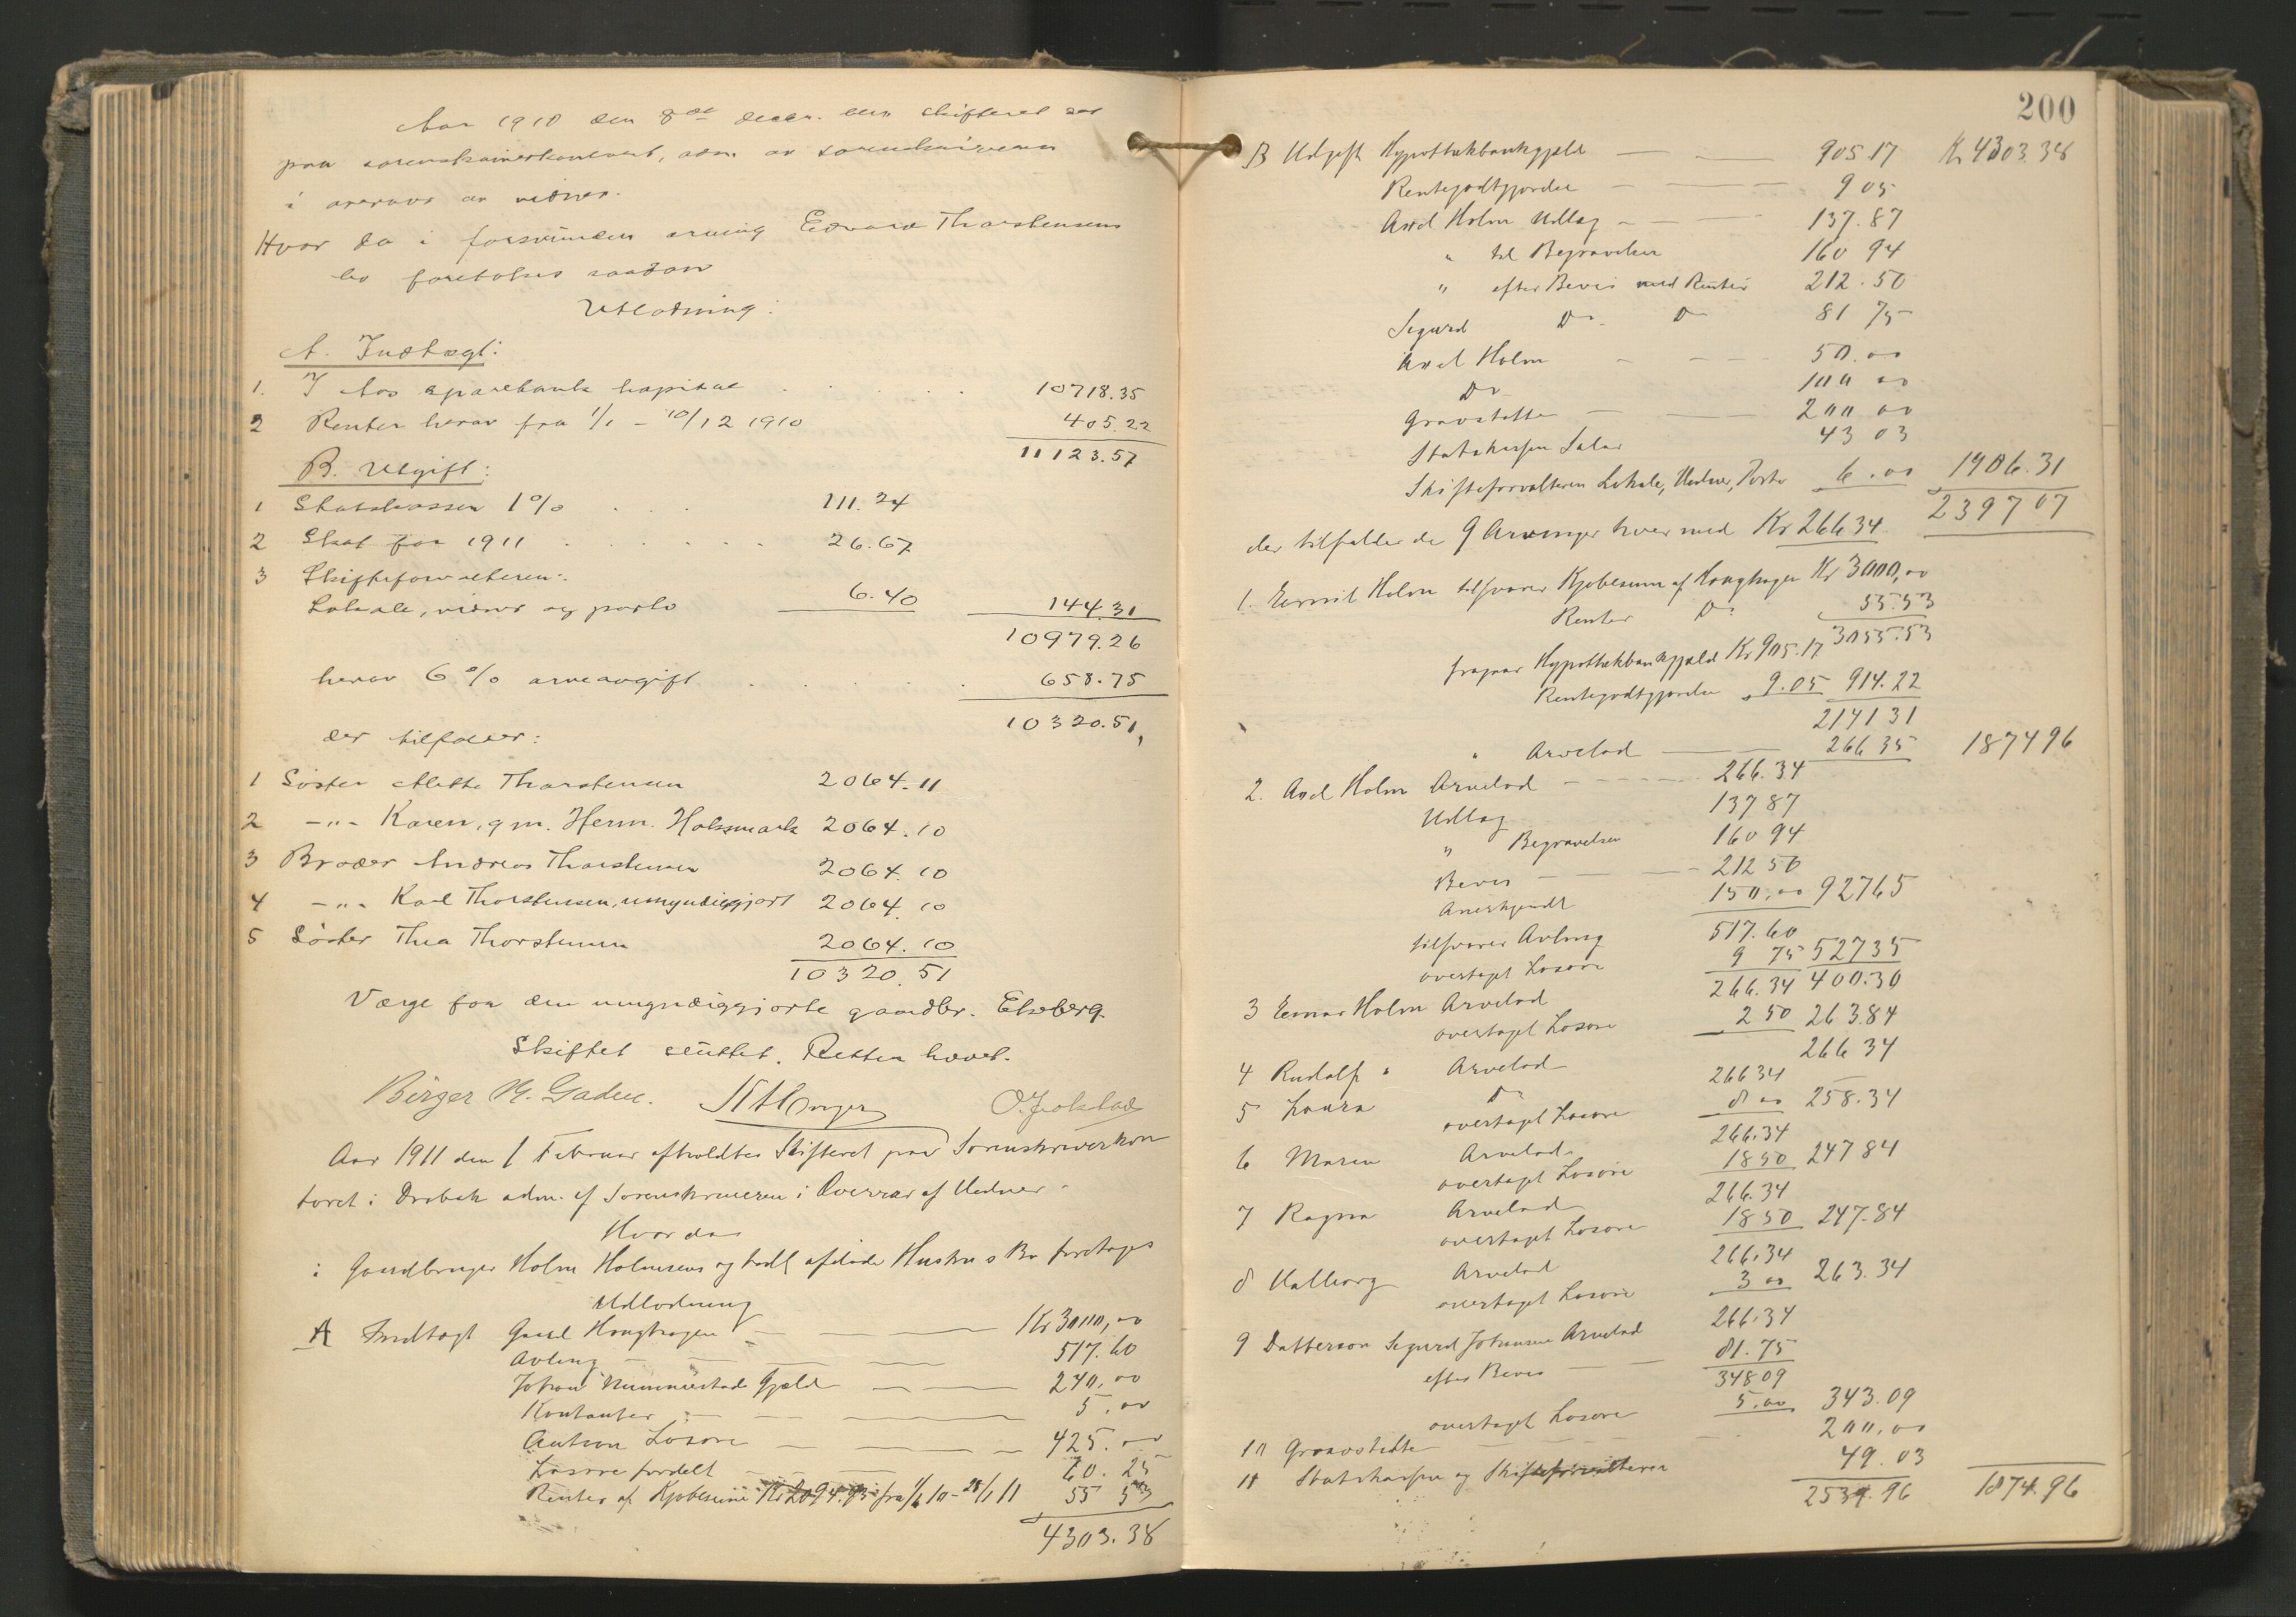 Aar 1910 den 8de decbr. blev skifteret sat
paa sorenskriverkontoret, adm. av sorenskriveren
i overvær av vidner.
Hvor da i forsvunden arving Edvard Thorstensens
bo foretokes saadan
Utlodning:
A. Indtægt:
1. I Aas sparebank kapital 10718.35
2 Renter herav fra 1/1 - 10/12 1910 405.22
11123.57
B. Utgift:
1 Statskassen 1% 111.24
2 Skat for 1911 26.67
3 Skifteforvalteren:
Lokale, vidner og porto 6.40 144.31
10979.26
herav 6% arveavgift 658.75
10320.51
der tilfalder:
1 Søster Mette Thorstensen 2064.11
2 -"- Karen, gm. Herm. Holsmark 2064.10
3 Broder Andreas Thorstensen 2064.10
4 -"- Karl Thorstensen, umyndiggjort 2064.10
5 Søster Thea Thorstensen 2064.10
10320.51
Værge for den umyndiggjorte gaardbr. Ekeberg.
Skiftet sluttet. Retten hævet.
Birger
Aar 1911 den 1 Februar afholdtes Skifteret paa Sorenskriverkon
toret i Drøbak adm. af Sorenskriveren i Overvær af Vidner.
Hvor da
i Gaardbruger Holm Holmsens og forhen afdøde Hustrus Bo foretages
Udlodning
A Indtægt Gaard Haughagen Kr 3000,00
Avling 517.60
Johan Gjæld 240,00
Kontanter 5.00
Auktion Løsøre 425.00
Løsøre fordelt 60.25
Renter af Kjøbesum Kr 2094.93 fra 1/6 10 - 28/1 11 55 53
4303.38
200
B Udgift Hypothekbankgjæld 905.17 Kr 4303.38
Rentegodtgjørelse 9 05
Axel Holm Udlæg 137.87
" til Begravelsen 160 94
" efter Bevis med Renter 212.50
Sigurd Do. Do 81 75
Axel Holm 50.00
Do 100 00
Gravstøtte 200 00
Statskassen Salær 43 03
Skifteforvalteren Lokale, Vidner, Porto 6.00 1906.31
2397 07
der tilfalder de 9 Arvinger hver med Kr 266 34
1. Holm tilsvarer Kjøbesum af Haughagen Kr 3000,00
Renter Do 55.53
3055.53
fragaar Hypothekbankgjæld Kr 905.17
Rentegodtgjørelse 9.05 914.22
2141 31
" Arvelod 266 35 1874 96
2. Axel Holm Arvelod 266.34
Udlæg 137 87
" Begravelsen 160 94
Bevis 212 50
Anerkjendt 150,00 927 65
tilsvarer Avling 517.60
overtaget Løsøre 9 75 527 35
400.30
3 Einar Holm Arvelod 266.34
overtaget Løsøre 2 50 263.84
4 Rudolf " Arvelod 266 34
5 Laura Do 266 34
overtaget Løsøre 8 00 258.34
6 Maren Arvelod 266.34
overtaget Løsøre 18 50 247 84
7 Ragna Arvelod 266.34
overtaget Løsøre 18 50 247.84
8 Valborg Arvelod 266,34
overtaget Løsøre 3 00 263.34
9 Dattersøn Sigurd Johansen Arvelod 266.34
efter Bevis 81.75
348 09
overtaget Løsøre 5.00 343.09
10 Gravstøtte 200,00
11 Statskassen og Skifteforvalteren 49.03
2539.96 1874.96